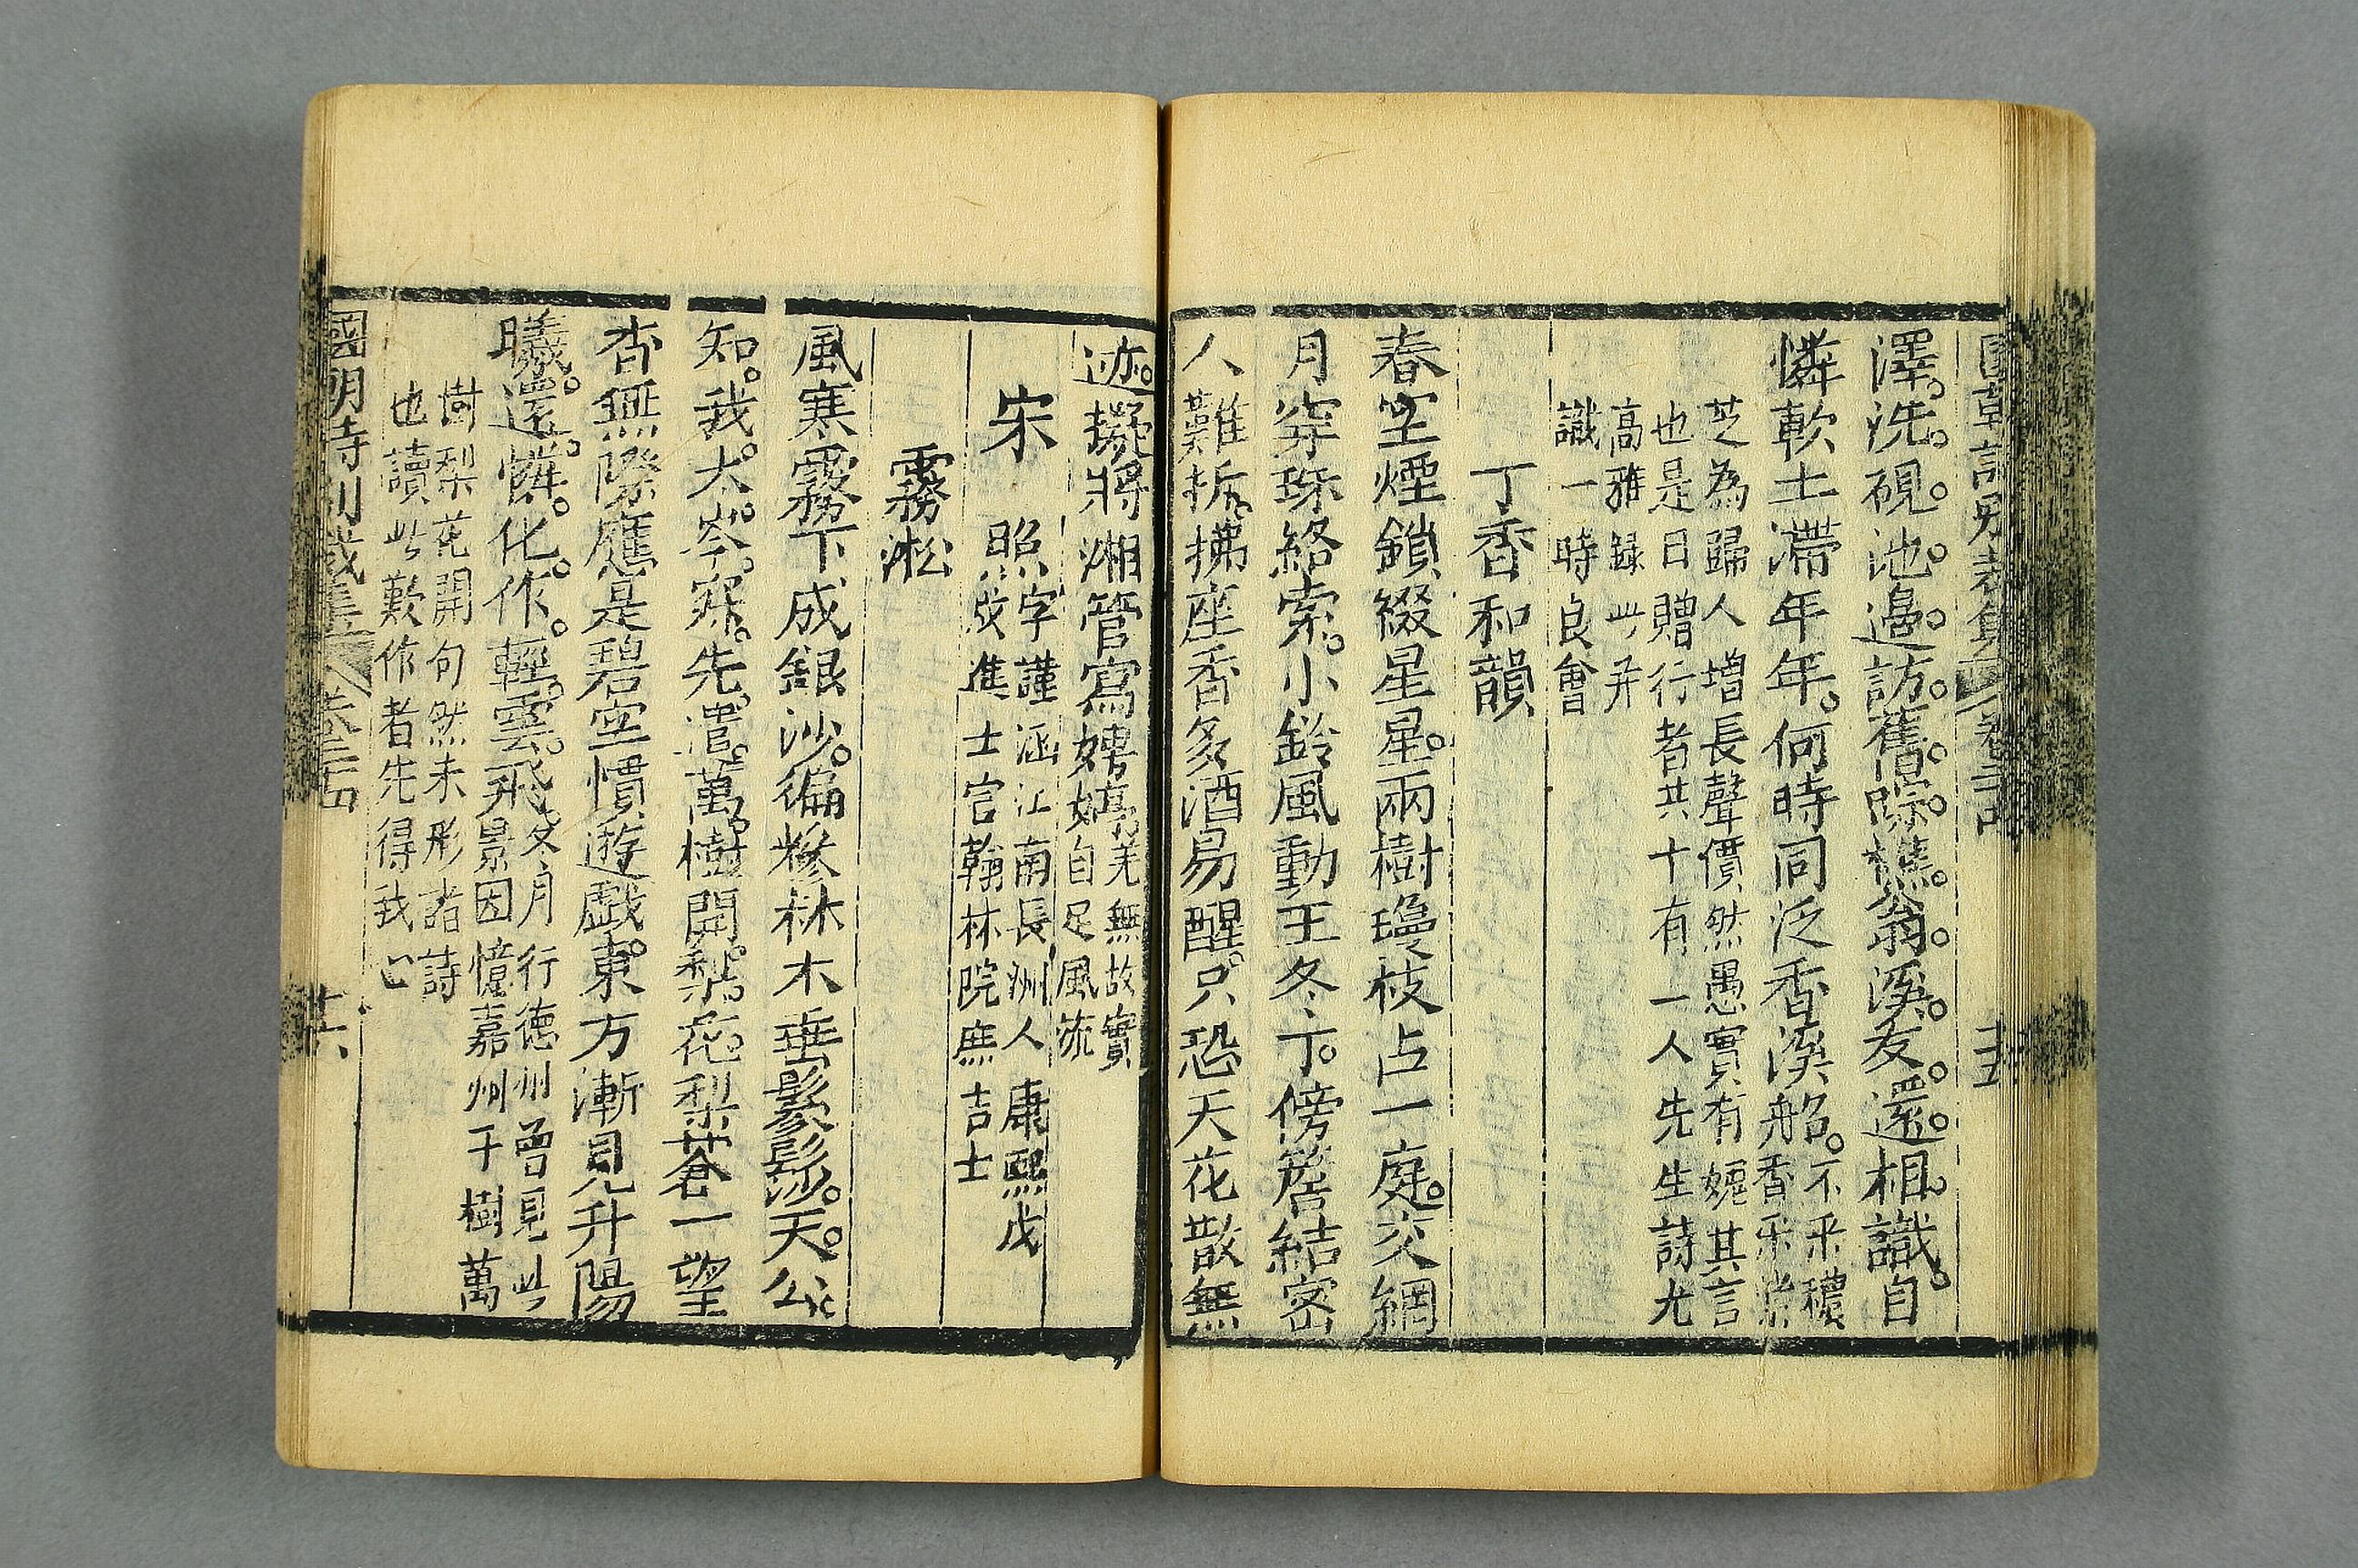 國朝詩別裁集 卷二十四
澤洗硯池邊訪舊踪樵翁溪友還相識自
憐軟土滯年年何時同泛香溪船不采穠
香采紫
芝為歸人增長聲價然愚實有媿其言
也是日贈行者共十有一人先生詩尤
高雅録此并
識一時良會
丁香和韻
春空煙鎖綴星星兩樹瓊枝占一庭交網
月穿珠絡索小鈴風動玉冬丁傍簷結密
人難拆拂座香多酒易醒只恐天花散無
迹擬將湘管寫娉婷羌無故實
自足風流
宋照字謹涵江南長洲人康熙戊
戌進士官翰林院庶吉士
霧淞
風寒霧下成銀沙徧糝林木垂鬖髿天公
知我太岑寂先遣萬樹開梨花梨蒼一望
杳無際應是碧空慣遊戲東方漸見升陽
曦還憐化作輕雲飛冬月行德州曾見此
景因憶嘉州千樹萬
樹梨花開句然未形諸詩
也讀此歎作者先得我心
國朝詩別裁集 卷二十四 廿六